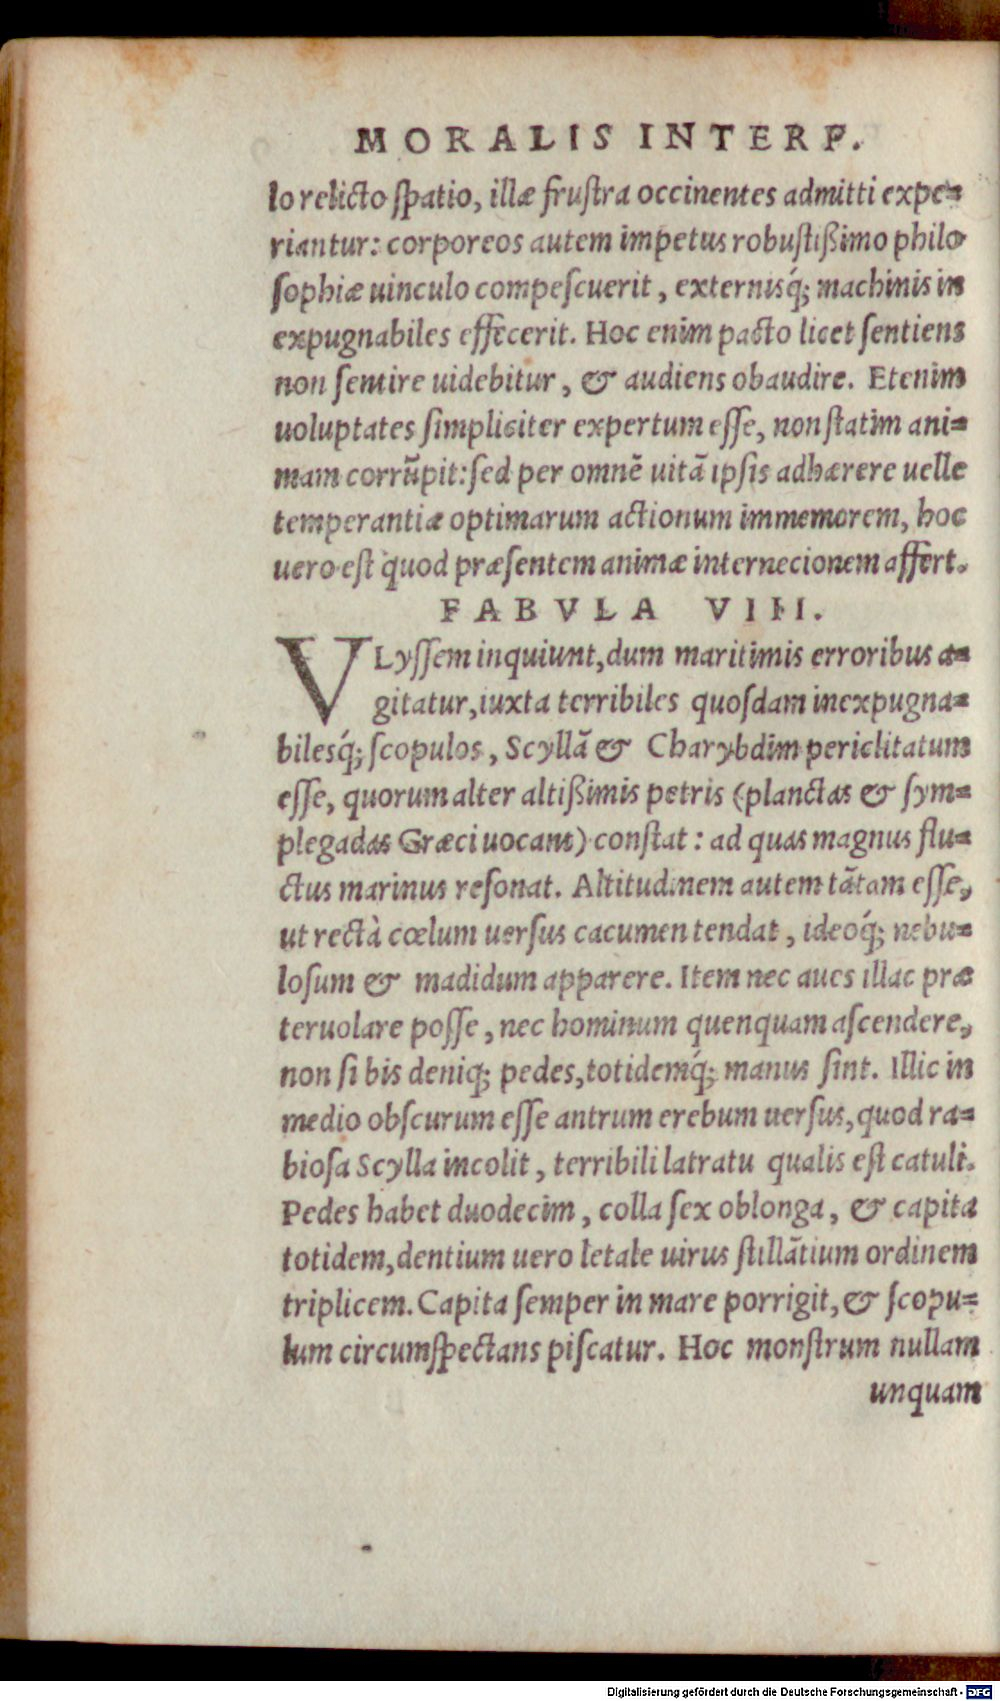 MORALIS INTERP.
lo relicto ſpatio, illæ fruſtra occinentes admitti expe=
riantur: corporeos autem impetus robuſtißimo philo
ſophiæ uinculo compeſcuerit, externisq́; machinis in
expugnabiles effecerit. Hoc enim pacto licet ſentiens
non ſentire uidebitur, & audiens obaudire. Etenim
uoluptates ſimpliciter expertum eſſe, non ſtatim ani=
mam corrũpit: ſed per omnẽ uitã ipſis adhærere uelle
temperantiæ optimarum actionum immemorem, hoc
uero eſt quod præſentem animæ internecionem affert.
FABVLA VIII.
VLyſſem inquiunt, dum maritimis erroribus a=
gitatur, iuxta terribiles quoſdam inexpugna=
bilesq́; ſcopulos, Scyllã & Charybdim periclitatum
eſſe, quorum alter altißimis petris (planctas & ſym=
plegadas Græci uocant) conſtat: ad quas magnus flu=
ctus marinus reſonat. Altitudinem autem tãtam eſſe,
ut rectà cœlum uerſus cacumen tendat, ideoq́; nebu=
loſum & madidum apparere. Item nec aues illac præ
teruolare poſſe, nec hominum quenquam aſcendere,
non ſi bis deniq; pedes, totidemq́; manus ſint. Illic in
medio obſcurum eſſe antrum erebum uerſus, quod ra=
bioſa Scylla incolit, terribili latratu qualis eſt catuli.
Pedes habet duodecim, colla ſex oblonga, & capita
totidem, dentium uero letale uirus ſtillãtium ordinem
triplicem. Capita ſemper in mare porrigit, & ſcopu=
lum circumſpectans piſcatur. Hoc monſtrum nullam
unquam
Digitalisierung gefördert durch die Deutsche Forschungsgemeinschaft - DFG